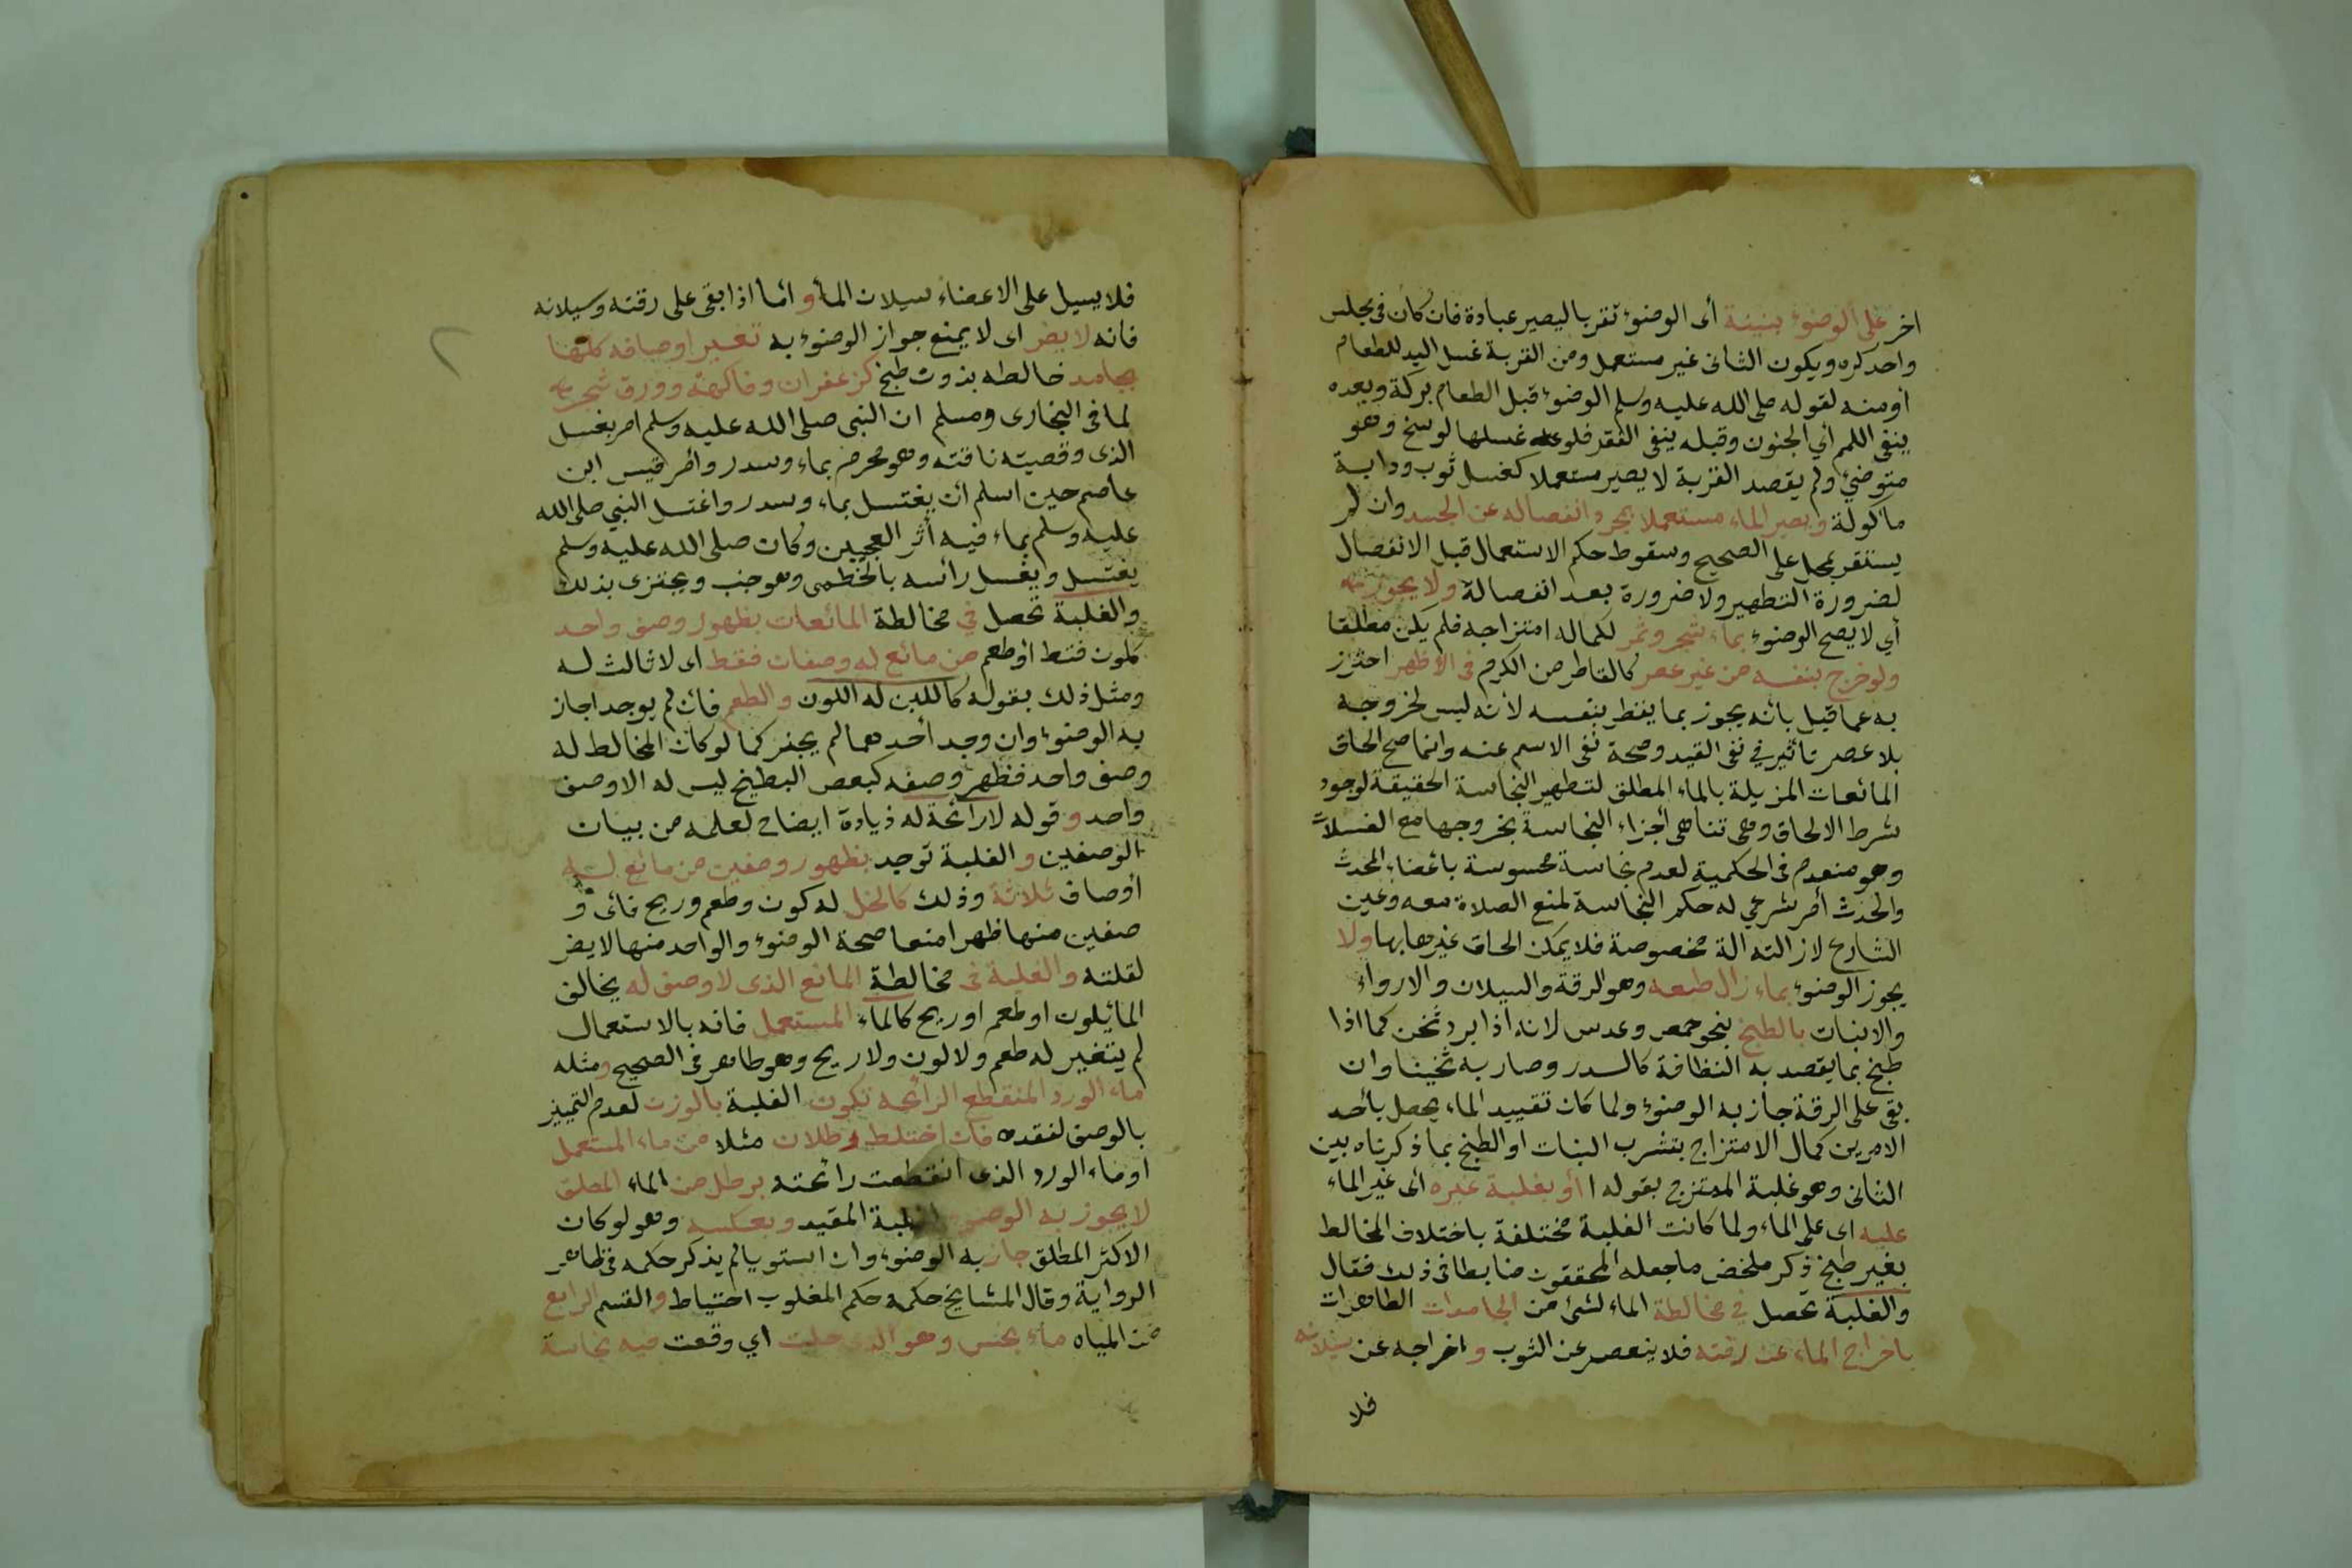 اخر على الوضوء بنيته أى الوضوء تقربا ليصير عبادة فان كان فى مجلس
واحد كره ويكون الثانى غير مستعمل ومن القربة غسل اليد للطعام
أومنه لقوله صلى الله عليه وسلم الوضوء قبل الطعام بركة وبعده
ينفى اللمم أي الجنون وقبله ينفى الفقر فلو غسلها لوسخ وهو
متوضئ ولم يقصد القربة لا يصير مستعملا كغسل ثوب ودابة
مأكولة ويصير الماء مستعملا بمجرد انفصاله عن الجسد وان لم
يستقر بمحل على الصحيح وسقوط حكم الاستعمال قبل الانفصال
لضرورة التطهير ولا ضرورة بعد انفصاله ولا يجوز
أي لا يصح الوضوء بماء شجر وثمر لكماله امتزاجه فلم يكن مطلقا
ولو خرج بنفسه من غير عصر كالقاطر من الكرم فى الأظهر احترز
به عما قيل بأنه يجوز بما يقطر بنفسه لأنه ليس لخروجه
بلا عصر تأثير في نفى القيد وصحة نفى الاسم عنه وانما صح الحاق
المائعات المزيلة بالماء المطلق لتطهير النجاسة الحقيقة لوجود
شرط الالحاق وهى تناهى أجزاء النجاسة بخروجها مع الغسلات
وهو منعدم فى الحكمية لعدم نجاسة محسوسة بأعضاء المحدث
والحدث أمر شرعي له حكم النجاسة لمنع الصلاة معه وعين
الشارع لازالته الة مخصوصة فلا يمكن الحاق غيرها بها ولا
يجوز الوضوء بماء زال طبعه وهو الرقة والسيلان والارواء
والانبات بالطبخ بنحو حمص وعدس لانه اذا برد ثخن كما اذا
طبخ بما يقصد به النظافة كالسدر وصار به ثخينا وان
بقى على الرقة جاز به الوضوء ولما كان تقييد الماء يحصل بأحد
الامرين كمال الامتزاج بتشرب النبات او الطبخ بما ذكرناه بين
الثانى وهو غلبة الممتزج بقوله أو بغلبة غيره أى غير الماء
عليه اى على الماء ولما كانت الغلبة مختلفة باختلاف المخالط
بغير طبخ ذكر ملخض ما جعله المحققون ضابطا فى ذلك فقال
والغلبة تحصل في مخالطة الماء لشئ من الجامدات الطاهرات
باخراج الماء عن رقته فلا ينعصر عن الثوب و اخراجه عن سيلانه
فلا
فلا يسيل على الاعضاء سيلان الماء و اما اذا بقى على رقته وسيلانه
فانه لا يضر اى لا يمنع جواز الوضوء به تغير اوصافه كلها
بجامد خالطه بدون طبخ كزعفران وفاكهة وورق شجر
لما فى البخارى ومسلم ان النبى صلى الله عليه وسلم امر بغسل
الذى وقصته ناقته وهو محرم بماء وسدر وأمر قيس ابن
عاصم حين اسلم أن يغتسل بماء وسدر واغتسل النبي صلى الله
عليه وسلم بماء فيه أثر العجين وكان صلى الله عليه وسلم
يغتسل ويغسل رأسه بالخطمى وهو جنب ويجتزى بذلك
والغلبة تحصل في مخالطة المائعات بظهور وصف واحد
كلون فقط أو طعم من مائع له وصفان فقط اى لا ثالث له
ومثل ذلك بقوله كاللبن له اللون والطعم فان لم يوجد اجاز
به الوضوء وان وجد أحدهما لم يجز كما لو كان المخالط له
وصف واحد فظهر وصفه كبعض البطيخ ليس له الا وصف
واحد وقوله لا رائحة له زيادة ايضاح لعلمه من بيان
الوصفين و الغلبة توجد بظهور وصفين من مائع له
أوصاف ثلاثة وذلك كالخل له كون وطعم وريح فأى و
صفين منها ظهرا منعا صحة الوضوء والواحد منها لا يضر
لقلته والغلبة فى مخالطة المائع الذى لا وصف له يخالف
الماء بلون او طعم او ريح كالماء المستعمل فانه بالاستعمال
لم يتغير له طعم ولا لون ولا ريح وهو طاهر فى الصحيح ومثله
ماء الورد المنقطع الرائحة تكون الغلبة بالوزن لعدم التمييز
بالوصف لفقده فان اختلط رطلان مثلا من ماء المستعمل
او ماء الورد الذى انقطعت رائحته برطل من الماء المطلق
لا يجوز به الوضوء لغلبة المقيد وبعكسه وهو لو كان
الاكثر المطلق جاز به الوضوء وان استويا لم يذكر حكمه فى ظاهر
الرواية وقال المشايخ حكمه حكم المغلوب احتياط والقسم الرابع
من المياه ماء نجس وهو الذى حلت اي وقعت فيه نجاسة